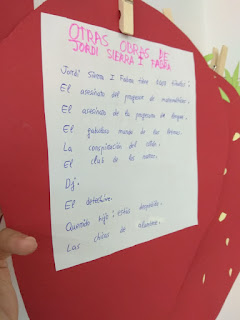 OTRAS OBRAS DE
JORDI SIERRA I FABRA
Jordi Sierra I Fabra tiene más títulos:
El asesinato del profesor de matemáticas.
El asesinato de la profesora de lengua.
El fabuloso mundo de las letras.
La conspiración del
El club de los
Dj.
El detective.
Querido hijo: estás despedido.
Las chicas de alambre.